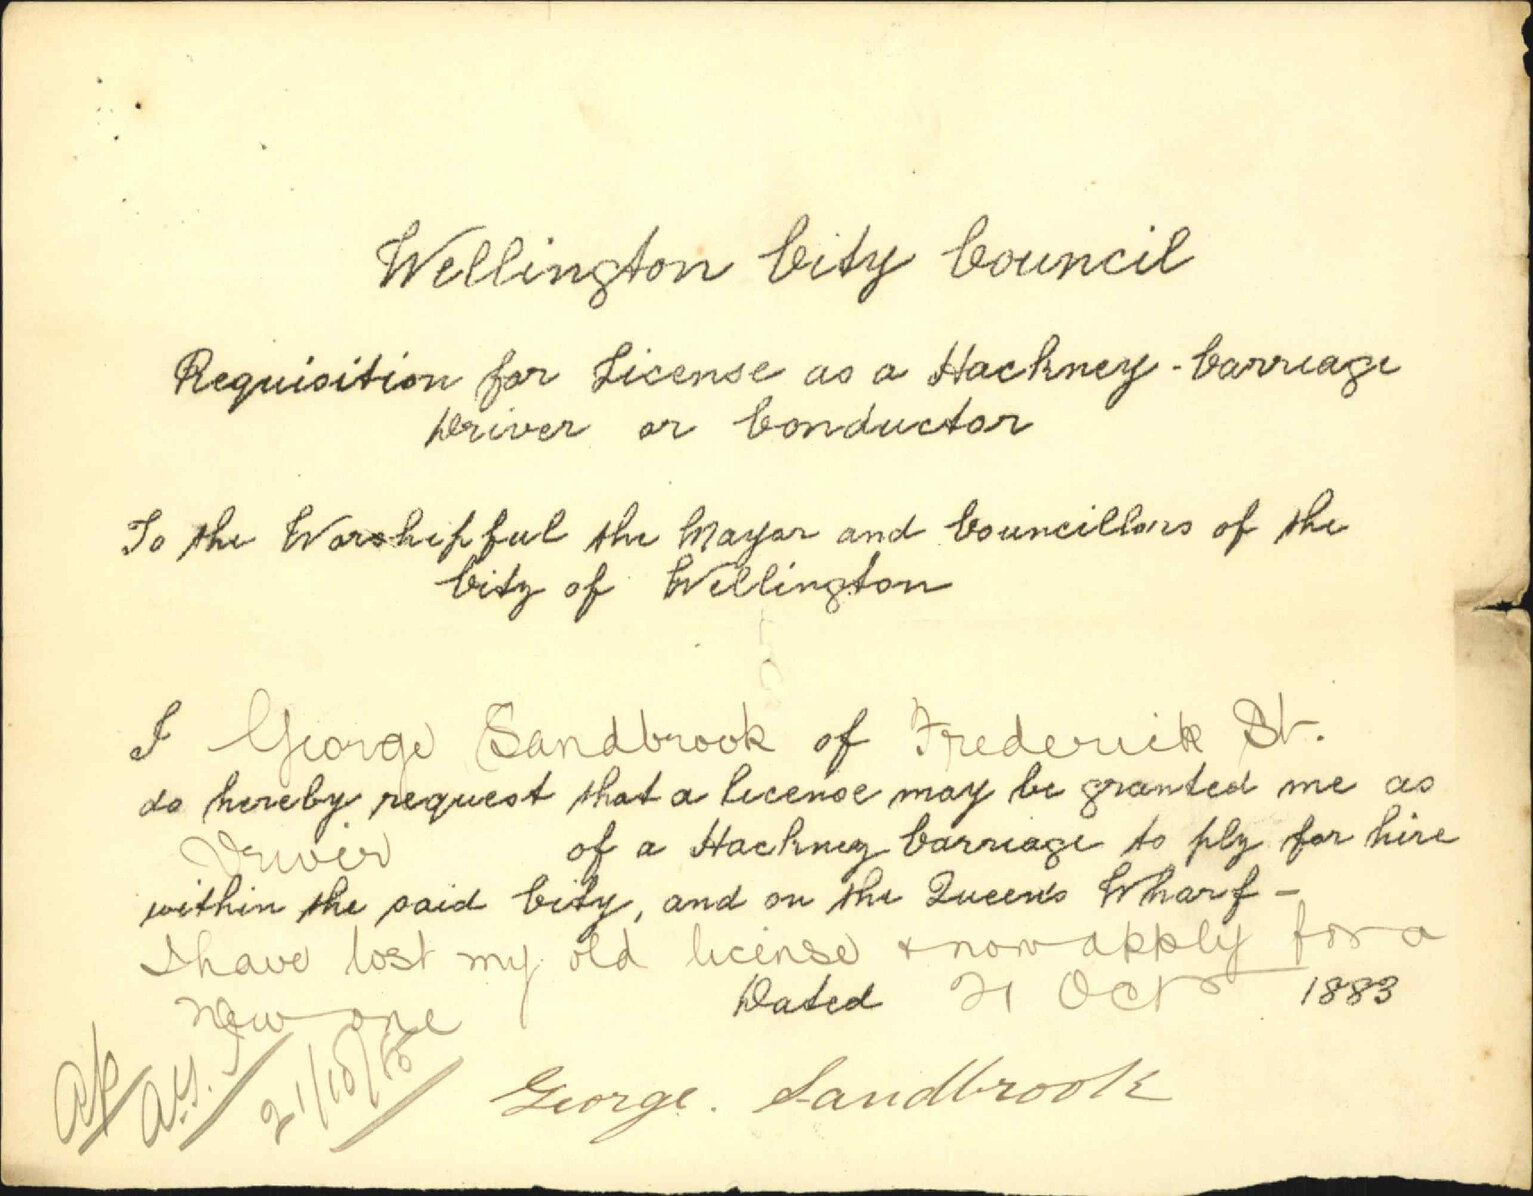 Wellington City Council
Requisition for License as a Hackney-Carriage
Driver or Conductor
To the Worshipful the Mayor and Councillors of the
City of Wellington
I George Sandbrook of Frederick St.
do hereby request that a license may be granted me as
Driver of a Hackney Carriage to ply for hire
within the said City, and on the Queen's Wharf -
I have lost my old license & now apply for a
New one
Dated 21 Oct 1883
George. Sandbrook